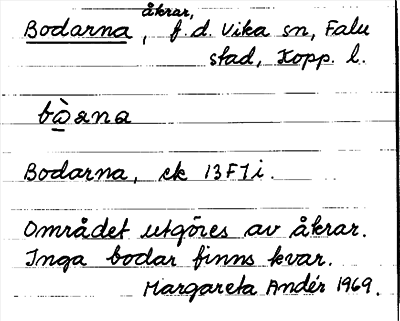 Bodarna, åkrar, f.d. Vika sn, Falu
stad, Kopp. l.
bò̠ana
Bodarna, ek 13F7i.
Området utgöres av åkrar.
Inga bodar finns kvar.
Margareta Andér 1969.